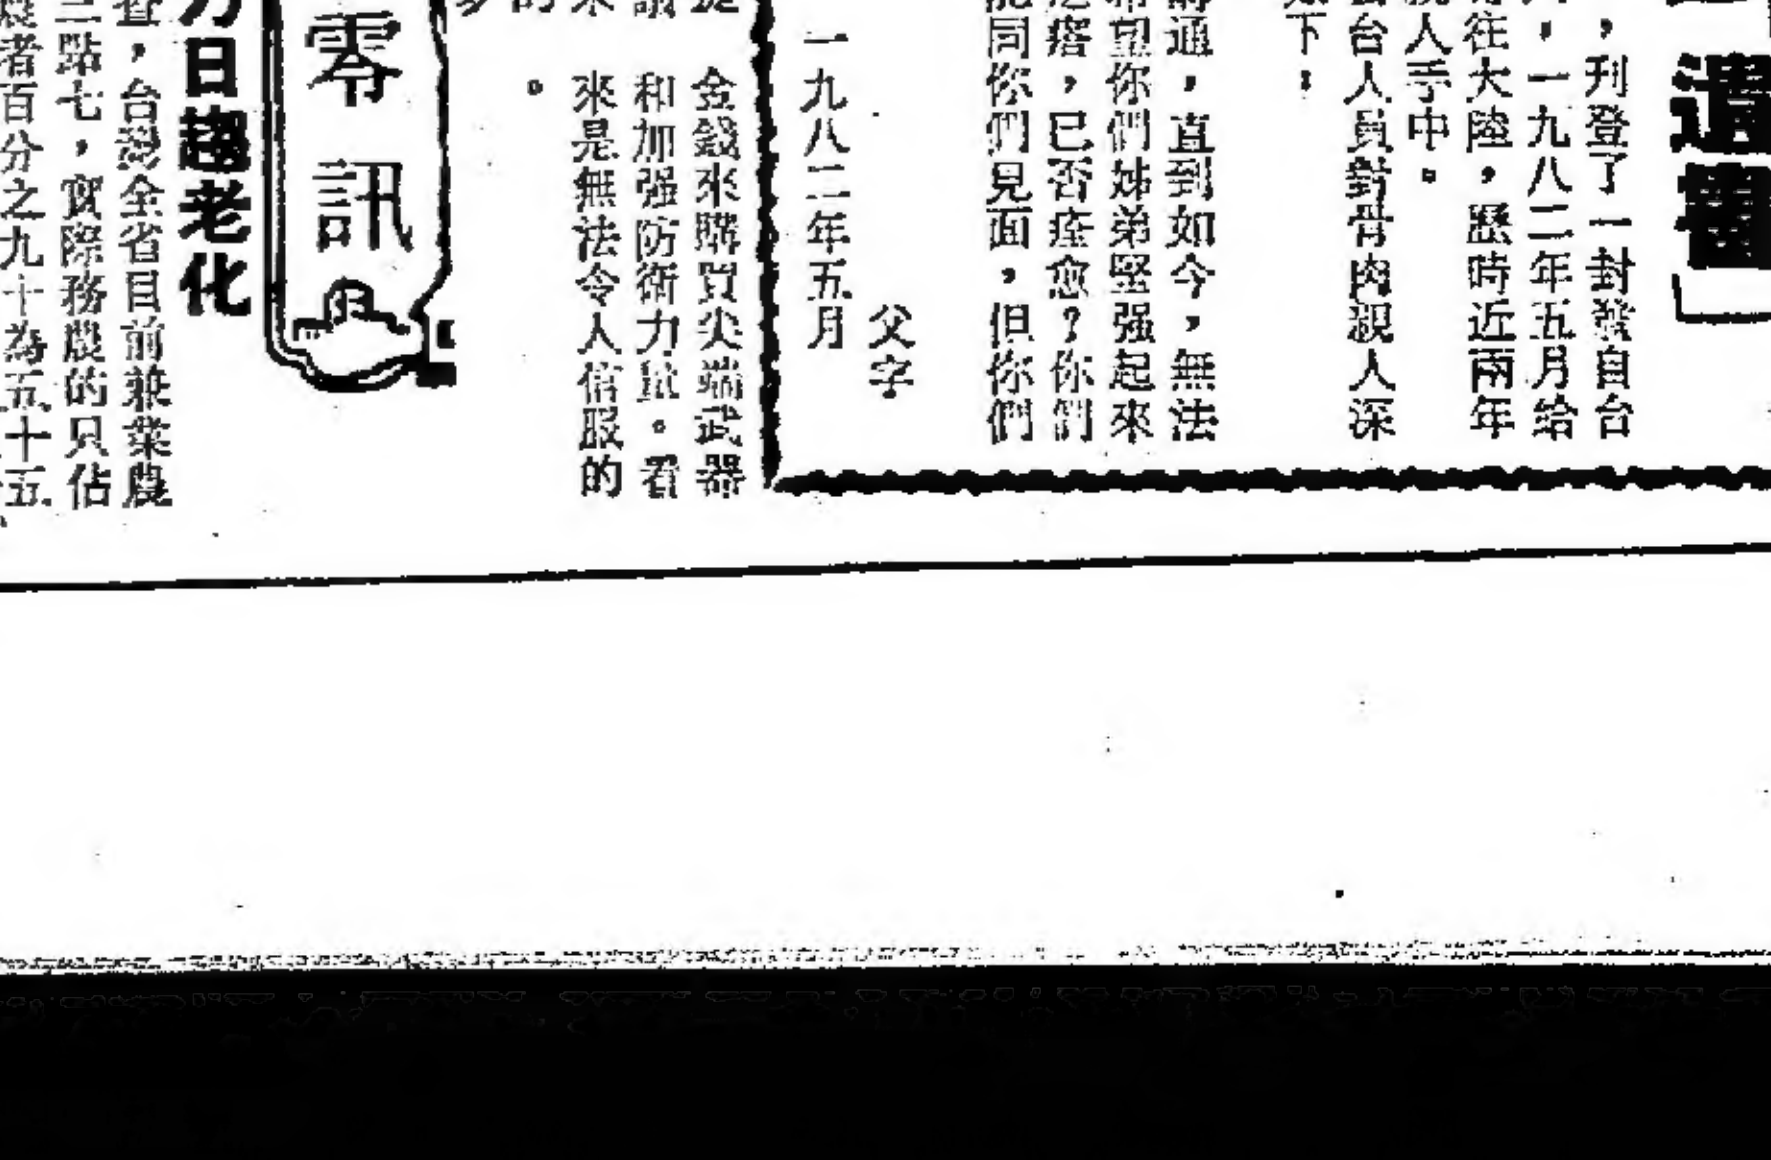 遺書
，刊登了一封發自台
，一九八二年五月给
往大陸，歷時近兩年
人手中。
台人員對骨肉親人深
下：
通，直到如今，無法
希望你們姊弟堅强起來
瘩，已否痊愈？你們
能同你們見面，但你們
父字
一九八二年五月
金錢來購買尖端武器
和加强防衛力量。看
來是無法令人信服的
。
零訊
力日趨老化
查，台灣全省目前兼業農
三點七，實際務農的只佔
農者百分之九十為五十五